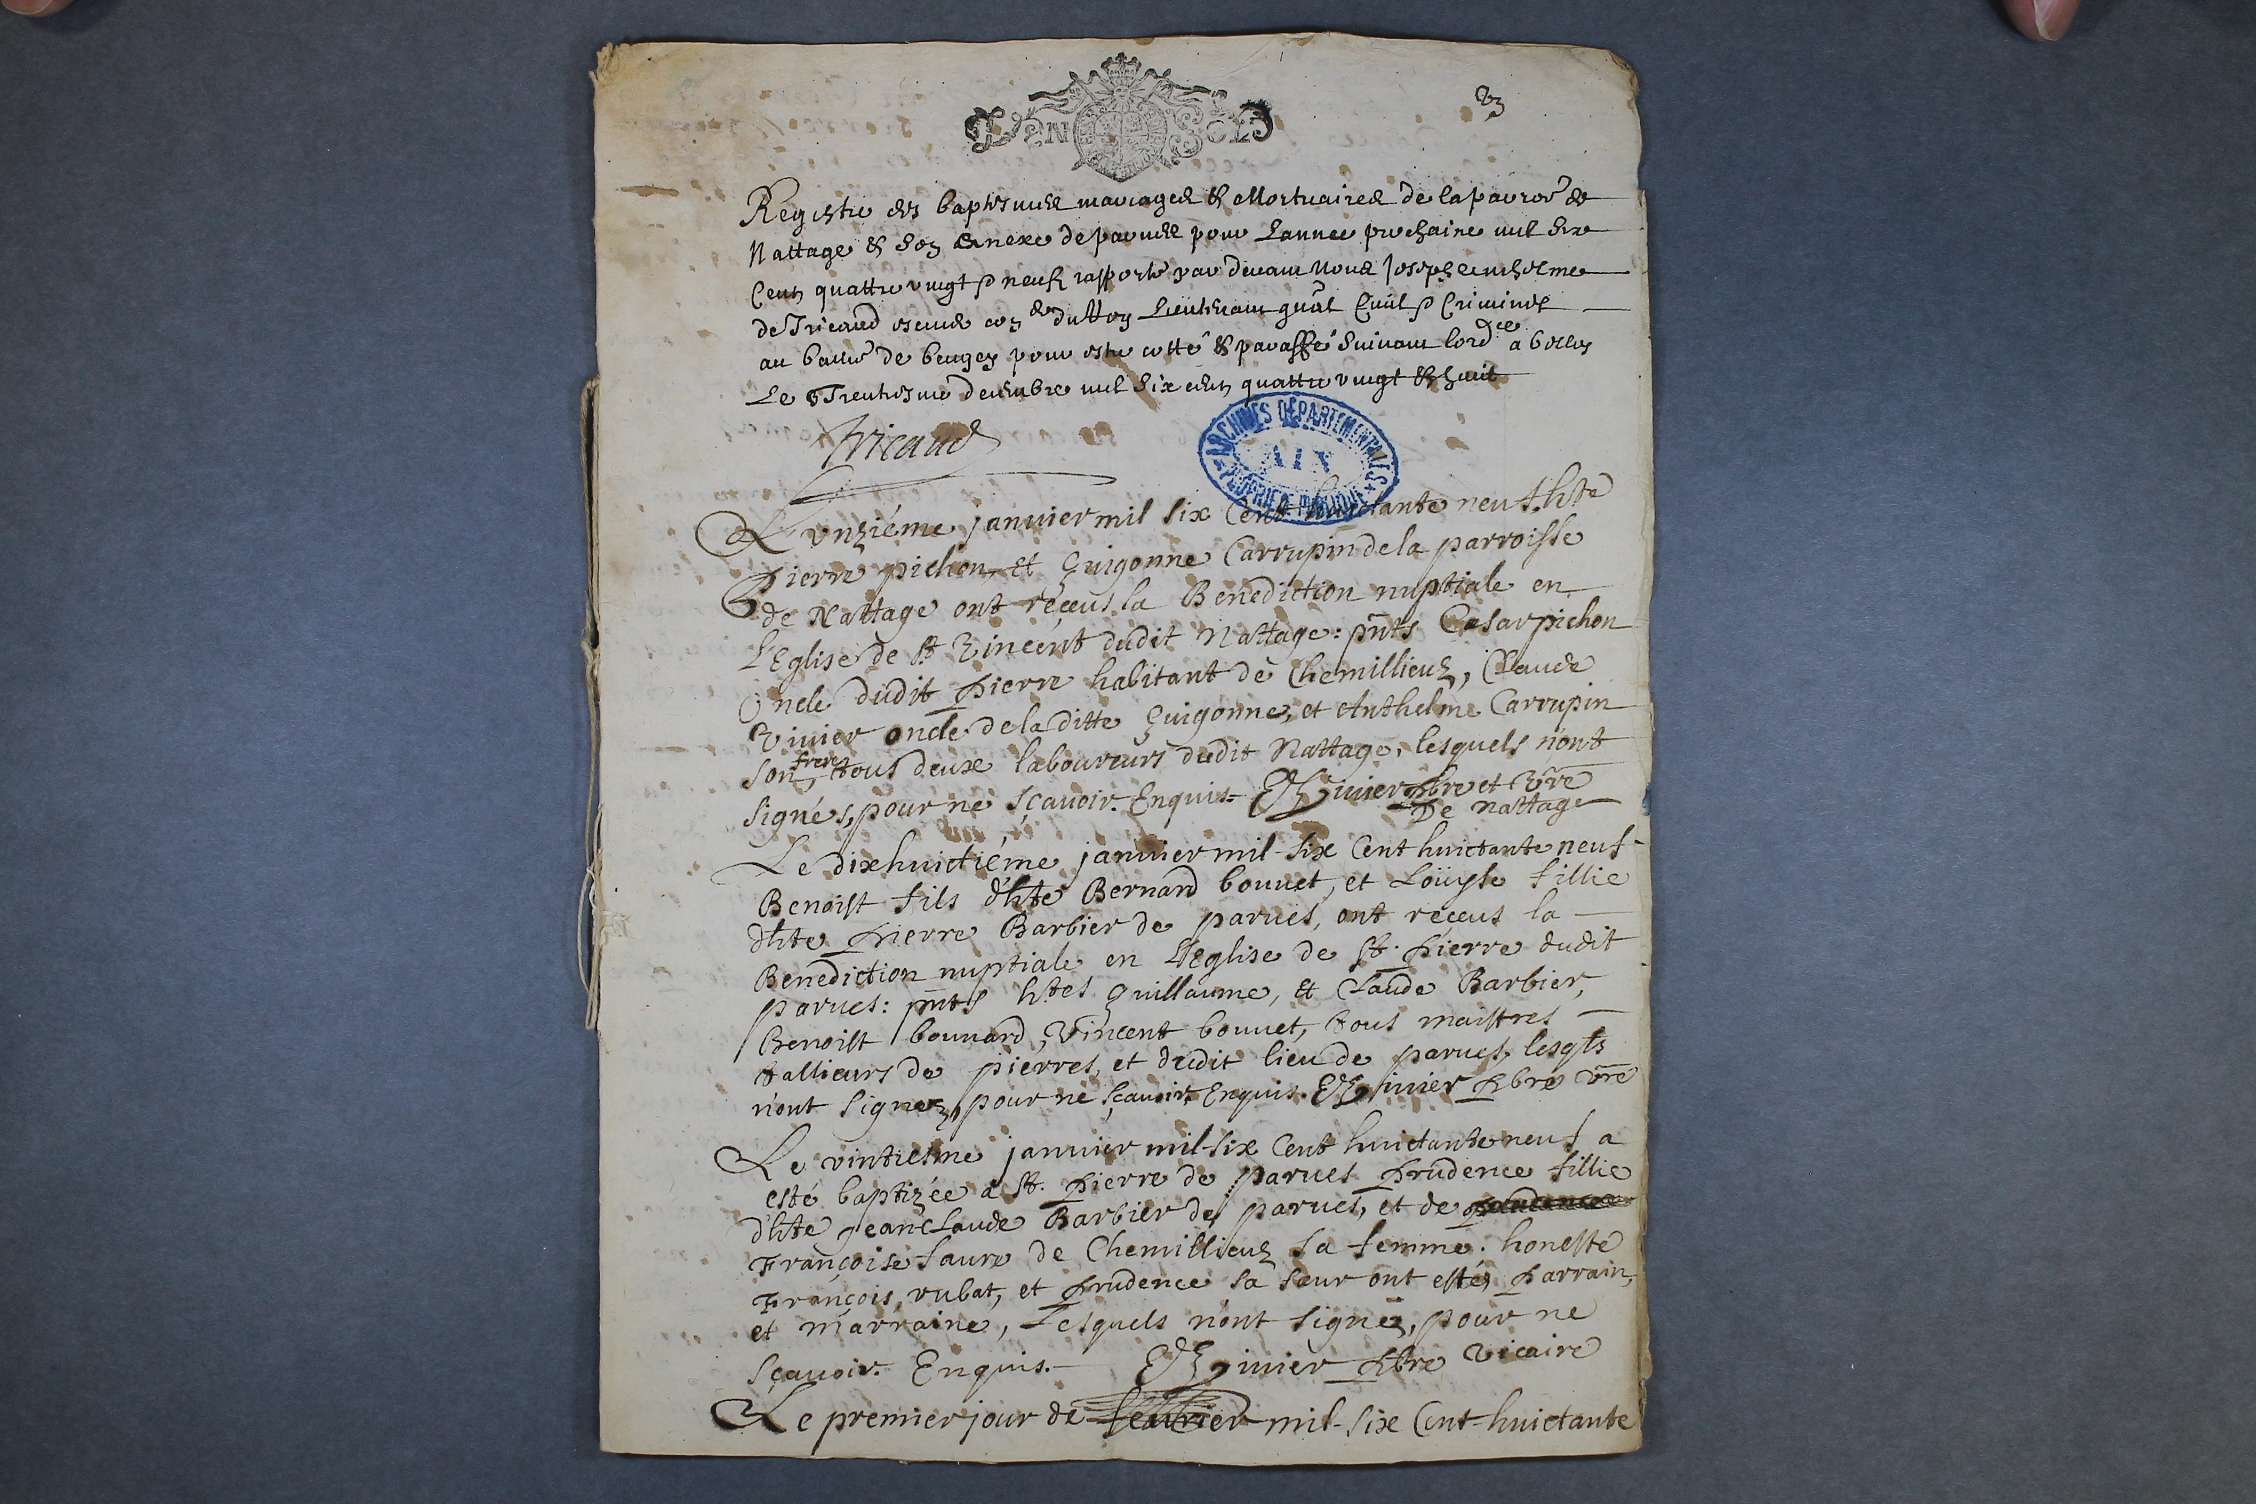 VN SOL
Registre des baptesmes mariages & Mortuaires de la parroê de
Nattage & son annexe de parues pour Lannee prochaine mil six
Cents quattre vingt & neuf rapporté par deuant Nous Joseph Anthelme
de Tricaud escuier con.er du Roy Lieutenant gñal Ciuil & Criminel
au bail.e de beugey pour estre cotté & paraffé suiuant lord.ce a belley
Le Trentiesme decembre mil six cents quattre vingt & huit
Tricaud
ARCHIVES DÉPARTEMENTALES
AIN
L'unziéme januier mil six Cent huictante neuf. hte
Pierre pichon, et Guigonne Carrupin de la parroisse
de Nattage ont réçeus la Benediction nuptiale en
L'Eglise de St Vincent dudit Nattage: pnts Cesar pichon
Oncle dudit Pierre habitant de Chemillieuz, Claude
Viuier oncle de la ditte Guigonne, et Anthelme Carrupin
son frere, tous deux laboureurs dudit Nattage, lesquels n'ont
signés, pour ne sçauoir. Enquis. Viuier Pbre et Vre
De Nattage
Le dixhuictiéme januier mil-six Cent huictante neuf
Benoist fils d'hte Bernard bouuet, et Loüyse fillie
d'hte Pierre Barbier de parues, ont réçeus la
Benediction nuptiale en L'Eglise de St. Pierre dudit
parues: pnts htes Guillaume, et Claude Barbier,
Benoist bouuard, Vincent bouuet, tous maistres
tallieurs de pierres, et dudit lieu de parues, lesqls
n'ont signez, pour ne sçauoir. Enquis. Viuier Pbre Vre
Le vintiesme januier mil-six Cent huictante neuf a
esté baptizée a St. Pierre de parues Prudence fillie
d'hte Jean Claude Barbier de parues, et de prudence
Françoise faure de Chemillieuz sa femme. honeste
François, rubat, et Prudence sa sœur ont estés Parrain,
et marraine, Lesquels n'ont signez, pour ne
sçauoir. Enquis. Viuier Pbre Vicaire
Le premier jour de feurier mil-six Cent-huictante